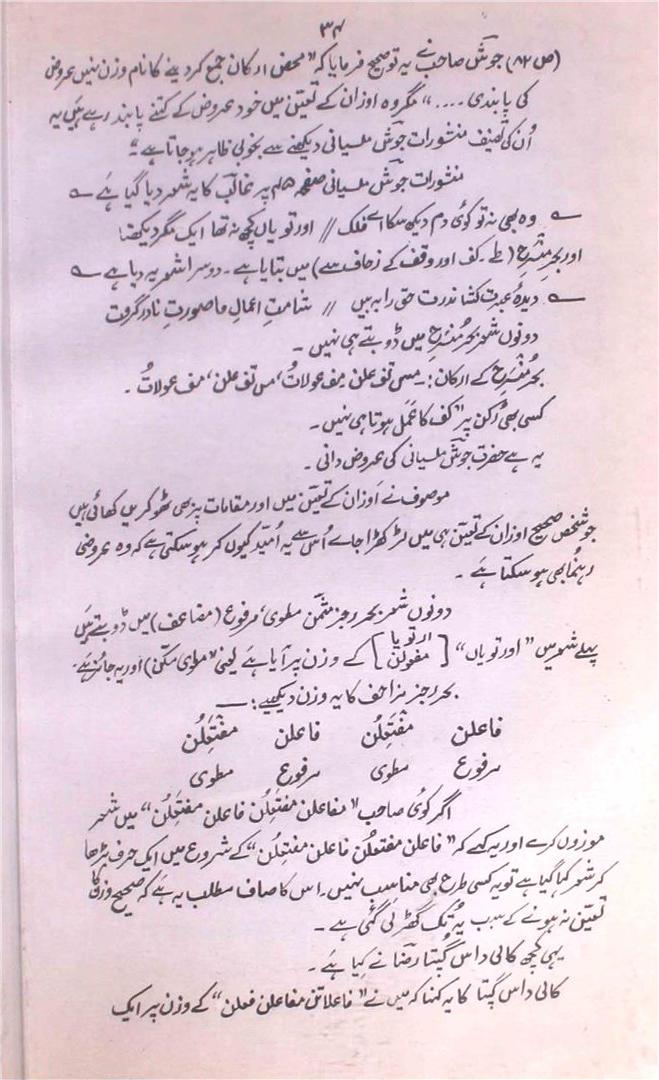 ۳۴
(ص ۸۲) جوشؔ صاحب نے یہ تو صحیح فرمایا کہ "محض ارکان جمع کر دینے کا نام وزن نہیں عروض
کی پابندی .... " مگر وہ اوزان کے تعین میں خود عروض کے کتنے پابند رہے ہیں یہ
اُن کی تصنیف منشورات جوشؔ ملسیانی دیکھنے سے بخوبی ظاہر ہو جاتا ہے۔
منشورات جوشؔ ملسیانی صفحہ پر غالبؔ کا یہ شعر دیا گیا ہے ؎
؎ وہ بھی نہ تو کوئی دم دیکھ سکا اے فلک // اور تو یاں کچھ نہ تھا ایک مگر دیکھنا
اور بحر منسرح (طے۔ کف اور وقف کے زحاف سے) میں بتایا ہے۔ دوسرا شعر یہ دیا ہے ؎
؎ دیدۂ عبرت کشا قدرت حق را ببیں // شامتِ اعمالِ ما صورتِ نادر گرفت
دونوں شعر بحر منسرح میں ڈوبتے ہی نہیں۔
بحر منسرح کے ارکان:۔ مس تف علن مف عولاتُ، مس تف علن، مف عولاتُ۔
کسی بھی رُکن پر "کف کا عمل ہوتا ہی نہیں۔
یہ ہے حضرت جوشؔ ملسیانی کی عروض دانی۔
موصوف نے اوزان کے تعین میں اور مقامات پر بھی ٹھوکریں کھائی ہیں
جو شخص صحیح اوزان کے تعین ہی میں لڑکھڑا جائے اُس سے یہ اُمید کیوں کر ہو سکتی ہے کہ وہ عروضی
رہنما بھی ہو سکتا ہے۔
دونوں شعر بحر رجز مثمن مطوی، مرفوع (مضاعف) میں ڈوبتے ہیں
پہلے شعر میں "اور تو یاں" [ار تو یا مفعولن] کے وزن پر آیا ہے یعنی "مطوی مسکن) اور یہ جائز ہے۔
بحر رجز مزاحف کا یہ وزن دیکھیے:—
فاعلن مفتَعِلُن فاعلن مفتَعِلُن
مرفوع مطوی مرفوع مطوی
اگر کوئی صاحب "مفاعلن مفتَعِلُن فاعلن مفتَعِلُن" میں شعر
موزوں کرے اور یہ کہے کہ "فاعلن مفتعلُن فاعلن مفتِعلن" کے شروع میں ایک حرف بڑھا
کر شعر کہا گیا ہے تو یہ کسی طرح بھی مناسب نہیں۔ اس کا صاف مطلب یہ ہے کہ صحیح وزن کا
تعین نہ ہونے کے سبب یہ تُک گھڑ لی گئی ہے۔
یہی کچھ کالی داس گپتا رضاؔ نے کیا ہے۔
کالی داس گپتا کا یہ کہنا کہ میں نے "فاعلاتن مفاعلن فعلن" کے وزن پر ایک